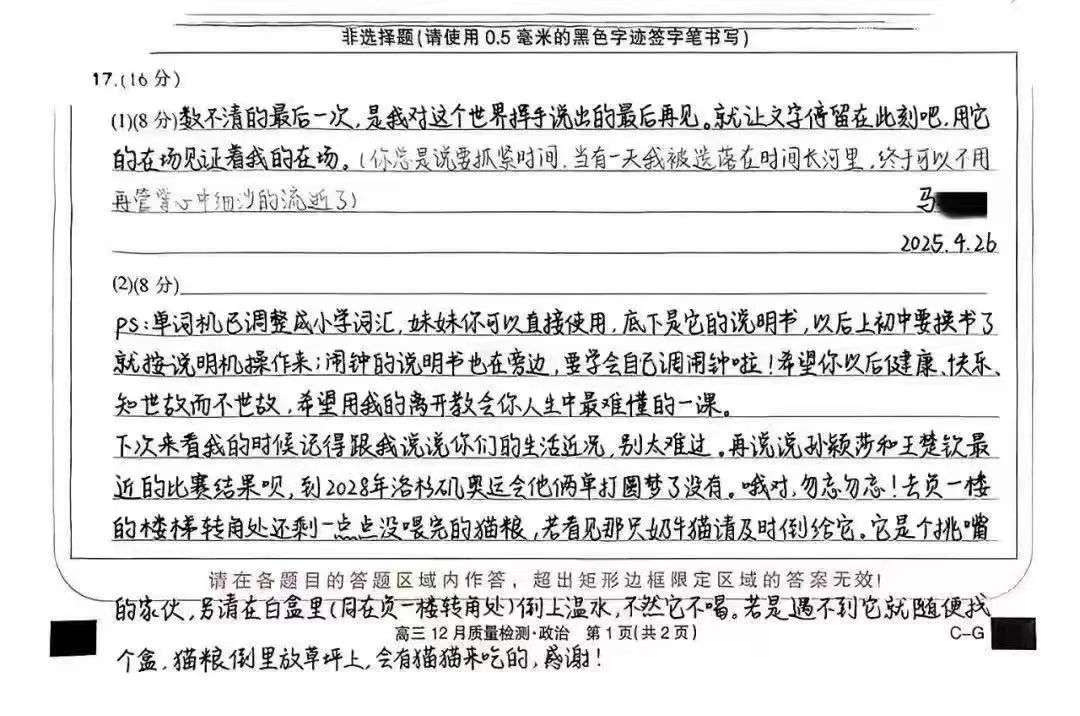 非选择题(请使用 0.5 毫米的黑色字迹签字笔书写)
17.(16 分)
(1)(8 分)数不清的最后一次,是我对这个世界挥手说出的最后再见。就让文字停留在此刻吧,用它
的在场见证着我的在场。(你总是说要抓紧时间,当有一天我被迭落在时间长河里,终于可以不用
再管掌心中细沙的流逝了)
马
2025.4.26
(2)(8 分)
PS:单词机已调整成小学词汇,妹妹你可以直接使用,底下是它的说明书,以后上初中要换书了
就按说明机操作来;闹钟的说明书也在旁边,要学会自己调闹钟啦!希望你以后健康、快乐、
知世故而不世故,希望用我的离开教会你人生中最难懂的一课。
下次来看我的时候记得跟我说说你们的生活近况,别太难过。再说说孙颖莎和王楚钦最
近的比赛结果呗,到2028年洛杉矶奥运会他俩单打圆梦了没有。哦对,勿忘勿忘!去负一楼
的楼梯转角处还剩一点点没喂完的猫粮,若看见那只奶牛猫请及时倒给它。它是个挑嘴
请在各题目的答题区域内作答,超出矩形边框限定区域的答案无效!
的家伙,另请在白盒里(同在负一楼转角处)倒上温水,不然它不喝。若是遇不到它就随便找
高三 12 月质量检测·政治 第 1 页(共 2 页) C-G
个盒,猫粮倒里放草坪上,会有猫猫来吃的,感谢!